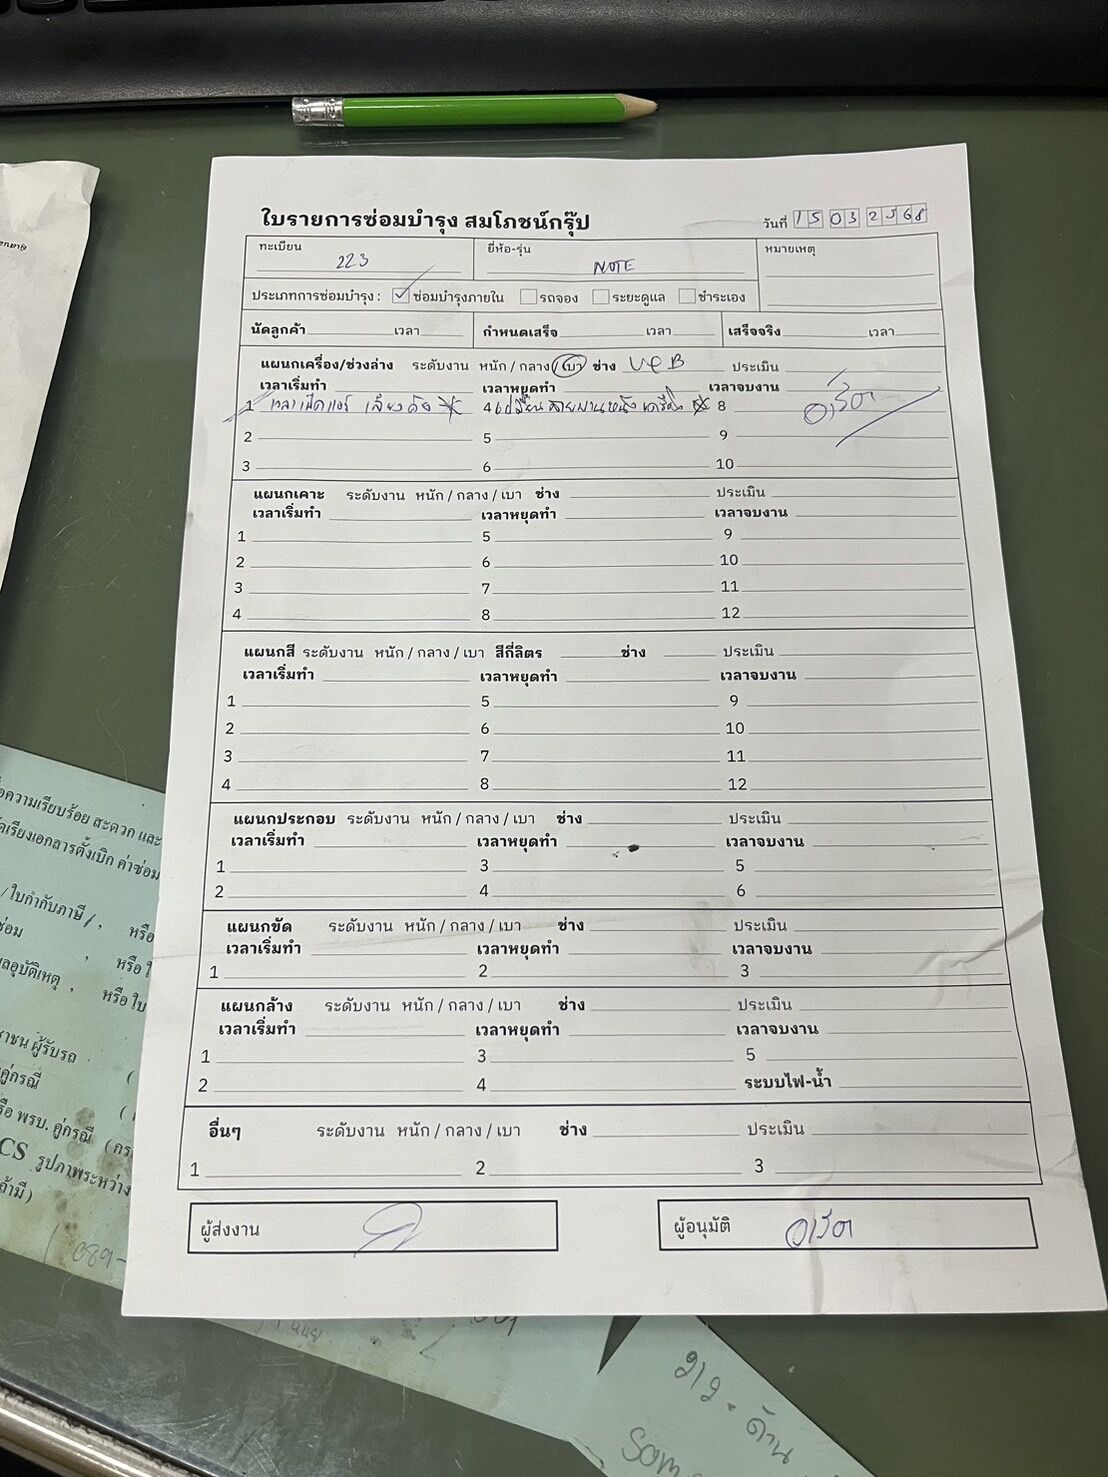 ใบรายการซ่อมบำรุง สมโภชน์กรุ๊ป
วันที่ 15 03 2568
ทะเบียน 223 ยี่ห้อ-รุ่น NOTE หมายเหตุ
ประเภทการซ่อมบำรุง : ซ่อมบำรุงภายใน รถจอง ระยะดูแล ชำระเอง
นัดลูกค้า เวลา กำหนดเสร็จ เวลา เสร็จจริง เวลา
แผนกเครื่อง/ช่วงล่าง ระดับงาน หนัก / กลาง / เบา ช่าง ประเมิน
เวลาเริ่มทำ เวลาหยุดทำ เวลาจบงาน
1 เวลาเปิดแอร์ เสียงดัง 4 เปลี่ยนสายพานหน้าเครื่อง 8
2 5 9
3 6 10
แผนกเคาะ ระดับงาน หนัก / กลาง / เบา ช่าง ประเมิน
เวลาเริ่มทำ เวลาหยุดทำ เวลาจบงาน
1 5 9
2 6 10
3 7 11
4 8 12
แผนกสี ระดับงาน หนัก / กลาง / เบา สีกี่ลิตร ช่าง ประเมิน
เวลาเริ่มทำ เวลาหยุดทำ เวลาจบงาน
1 5 9
2 6 10
3 7 11
4 8 12
แผนกประกอบ ระดับงาน หนัก / กลาง / เบา ช่าง ประเมิน
เวลาเริ่มทำ เวลาหยุดทำ เวลาจบงาน
1 3 5
2 4 6
แผนกขัด ระดับงาน หนัก / กลาง / เบา ช่าง ประเมิน
เวลาเริ่มทำ เวลาหยุดทำ เวลาจบงาน
1 2 3
แผนกล้าง ระดับงาน หนัก / กลาง / เบา ช่าง ประเมิน
เวลาเริ่มทำ เวลาหยุดทำ เวลาจบงาน
1 3 5
2 4 ระบบไฟ-น้ำ
อื่นๆ ระดับงาน หนัก / กลาง / เบา ช่าง ประเมิน
1 2 3
ผู้ส่งงาน ผู้อนุมัติ
ความเรียบร้อย สะดวก และ
เรียงเอกสารตั้งเบิก ค่าซ่อม
/ ใบกำกับภาษี / , หรือ
ซ่อม , หรือ
อุบัติเหตุ , หรือ ใบ
ผู้รับรถ (
คู่กรณี (
พรบ. คู่กรณี (
CS รูปภาพระหว่าง
ถ้ามี )
089-
212 - ด้าน